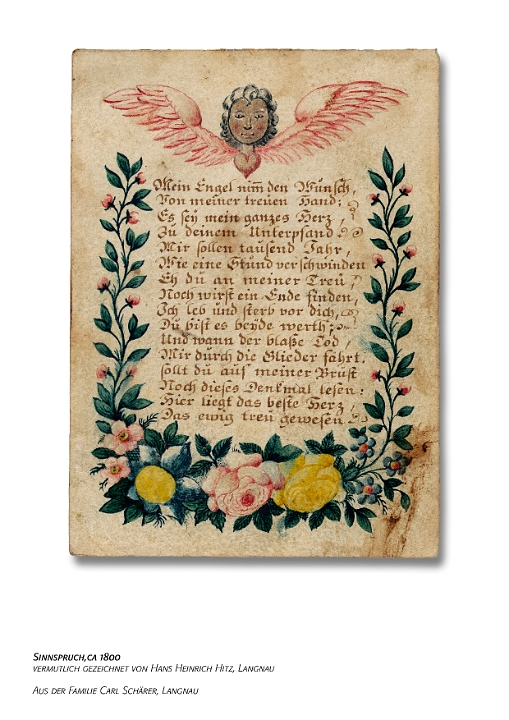 Mein Engel nim̄ den Wünsch,
Von meiner treüen Hand:
Es seÿ mein ganzes Herz,
Zu deinem Unterpfand
Mir sollen taüsend Jahr,
Wie eine Stünd verschwinden
Eh dü an meiner Treü
Noch wirst ein Ende finden,
Jch leb ünd sterb vor dich,
Dü bist es beÿde werth;
Und wann der blaße Tod,
Mir dürch die Glieder fährt.
sollt dü aüf meiner Brüst
Noch dieses Denkmal lesen:
Hier liegt das beste Herz,
Das ewig treü gewesen.
Sinnspruch, ca 1800
vermutlich gezeichnet von Hans Heinrich Hitz, Langnau
Aus der Familie Carl Schärer, Langnau